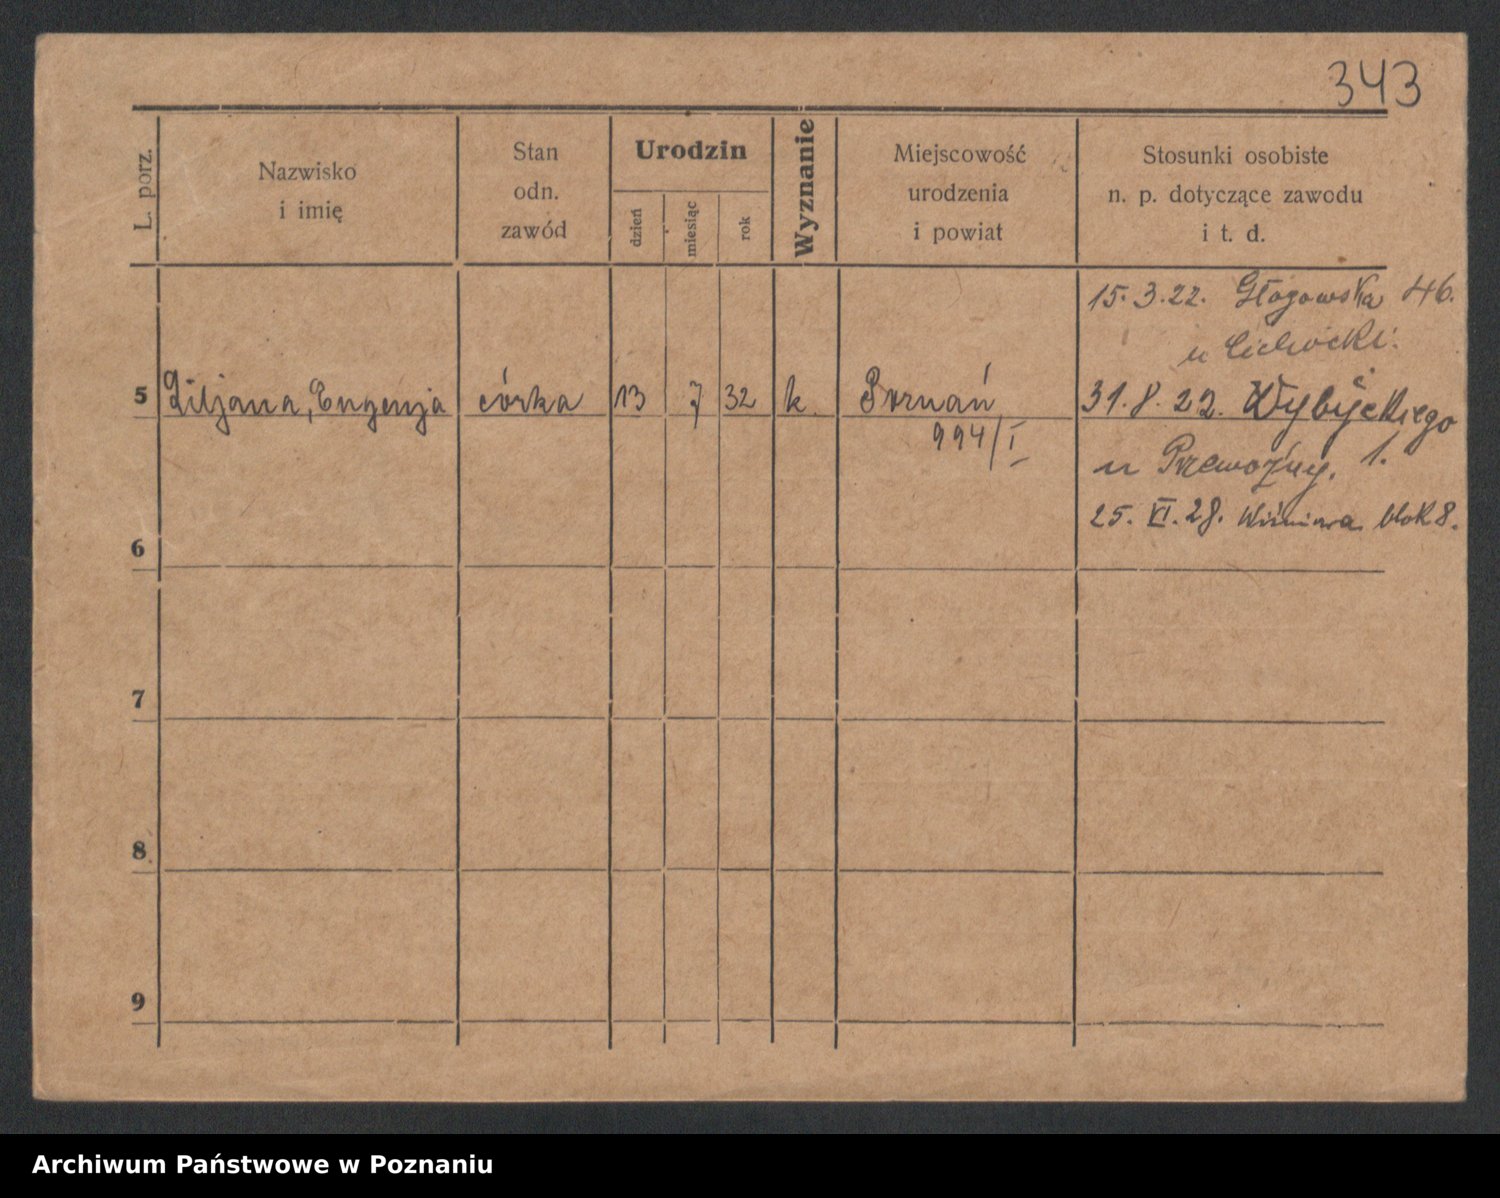 343
L. porz.
Nazwisko
i imię
Stan
odn.
zawód
Urodzin
dzień
miesiąc
rok
Wyznanie
Miejscowość
urodzenia
i powiat
Stosunki osobiste
n. p. dotyczące zawodu
i t. d.
15. 3. 22. Głogowska 46.
u Cichocki.
5 Liljana, Eugenja córka 13 7 32 k. Poznań 31. 8. 22. Wybickiego
994/I
u Przewoźny. 1.
25. XI. 28. Winiara blok 8.
6
7
8
9
Archiwum Państwowe w Poznaniu